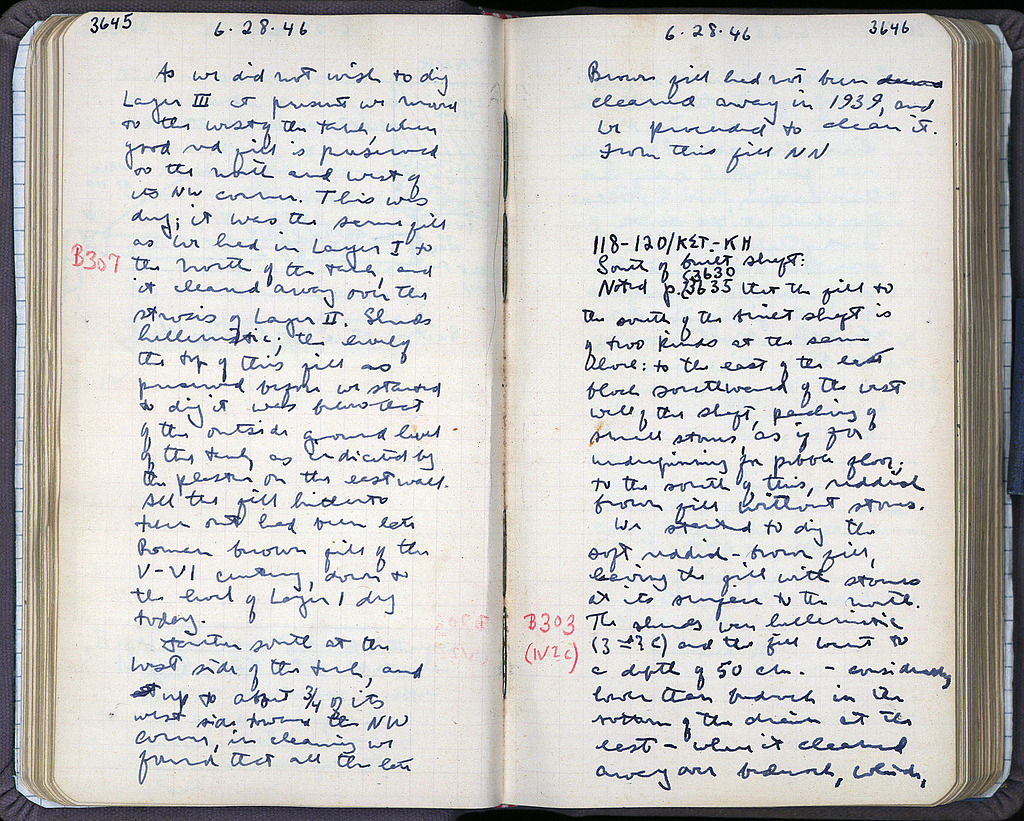 3645
6·28·46
As we did not wish to dig
Layer III at present we moved
to the west of the tank, where
good red fill is preserved
to the north and west of
its NW corner. This was
dug; it was the same fill
as we had in Layer I to
B307
the north of the tank, and
it cleared away over the
strosis of Layer II. Sherds
hellenistic; the level of
the top of this fill as
preserved before we started
to dig it was below that
of the outside ground level
of the tank as indicated by
the plaster on the east wall.
All the fill hitherto
had been late
Roman brown fill of the
V-VI century, down to
the level of Layer I dug
today.
Further south at the
west side of the tank, and
up to about 3/4 of its
west side toward the NW
corner, in cleaning we
found that all the late
3646
6·28·46
Brown fill had not been
cleared away in 1939, and
we proceeded to clean it.
From this fill NN
118-120/ΚΣΤ-ΚΗ
South of built shaft:
3630
Noted p. 3635 that the fill to
the south of the built shaft is
of two kinds at the same
level: to the east of the last
block southward of the west
wall of the shaft, packing of
small stones, as if for
underpinning for pebble floor;
to the south of this, reddish
brown fill without stones.
We started to dig the
soft reddish-brown fill,
leaving the fill with stones
at its surface to the north.
B303
The sherds were hellenistic
(IV-2c)
(3 - 2 c) and the fill went to
a depth of 50 cm. - considerably
lower than bedrock in the
bottom of the drain at the
east - when it cleared
away over bedrock, which,